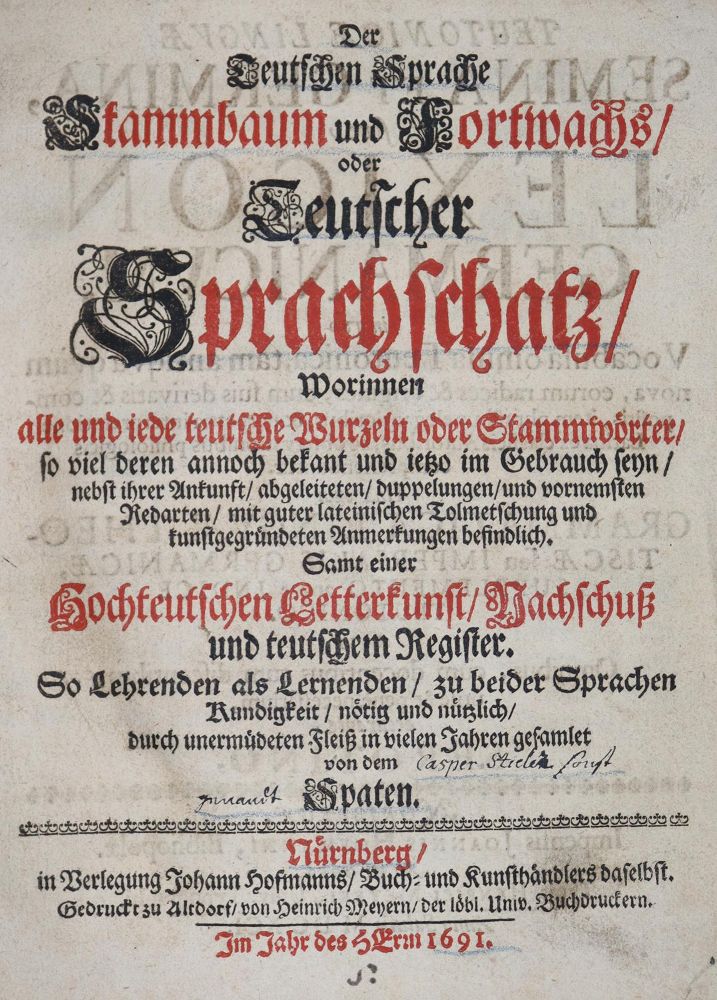 Der
Teutschen Sprache
Stammbaum und Fortwachs/
oder
Teutscher
Sprachschatz/
Worinnen
alle und iede teutsche Wurzeln oder Stammwörter/
so viel deren annoch bekant und ietzo im Gebrauch seyn/
nebst ihrer Ankunft/ abgeleiteten/ duppelungen/ und vornemsten
Redarten/ mit guter lateinischen Tolmetschung und
kunstgegründeten Anmerkungen befindlich.
Samt einer
Hochteutschen Letterkunst/ Nachschuß
und teutschem Register.
So Lehrenden als Lernenden/ zu beider Sprachen
Kundigkeit/ nötig und nützlich/
durch unermüdeten Fleiß in vielen Jahren gesamlet
von dem Casper Stieler sonst
genandt Spaten.
Nürnberg/
in Verlegung Johann Hofmanns/ Buch- und Kunsthändlers daselbst.
Gedruckt zu Altdorf/ von Heinrich Meyern/ der löbl. Univ. Buchdruckern.
Im Jahr des HErrn 1691.